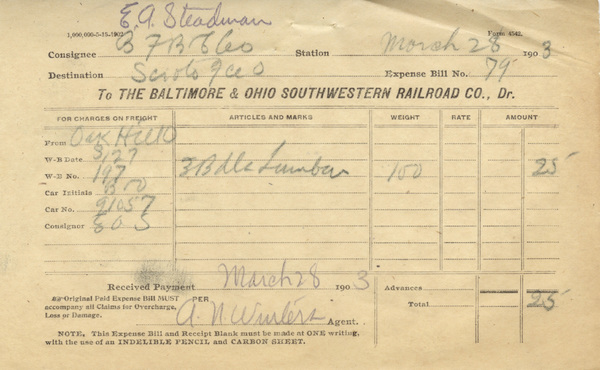 E. A. Steadman
1,000,000-5-15-1902 Form 4542.
Consignee B F B & Co Station March 28 1903
Destination Scioto Fce O Expense Bill No. 79
To THE BALTIMORE & OHIO SOUTHWESTERN RAILROAD CO., Dr.
FOR CHARGES ON FREIGHT ARTICLES AND MARKS WEIGHT RATE AMOUNT
From Oak Hill O
W-B Date 3/27
W-B No. 197 3 Bdls Lumber 150 25
Car Initials B O
Car No. 91057
Consignor E O S
Received Payment March 28 1903 Advances
Original Paid Expense Bill MUST PER
accompany all Claims for Overcharge, Total 25
Loss or Damage. A. N. Winters Agent.
NOTE, This Expense Bill and Receipt Blank must be made at ONE writing,
with the use of an INDELIBLE PENCIL and CARBON SHEET.